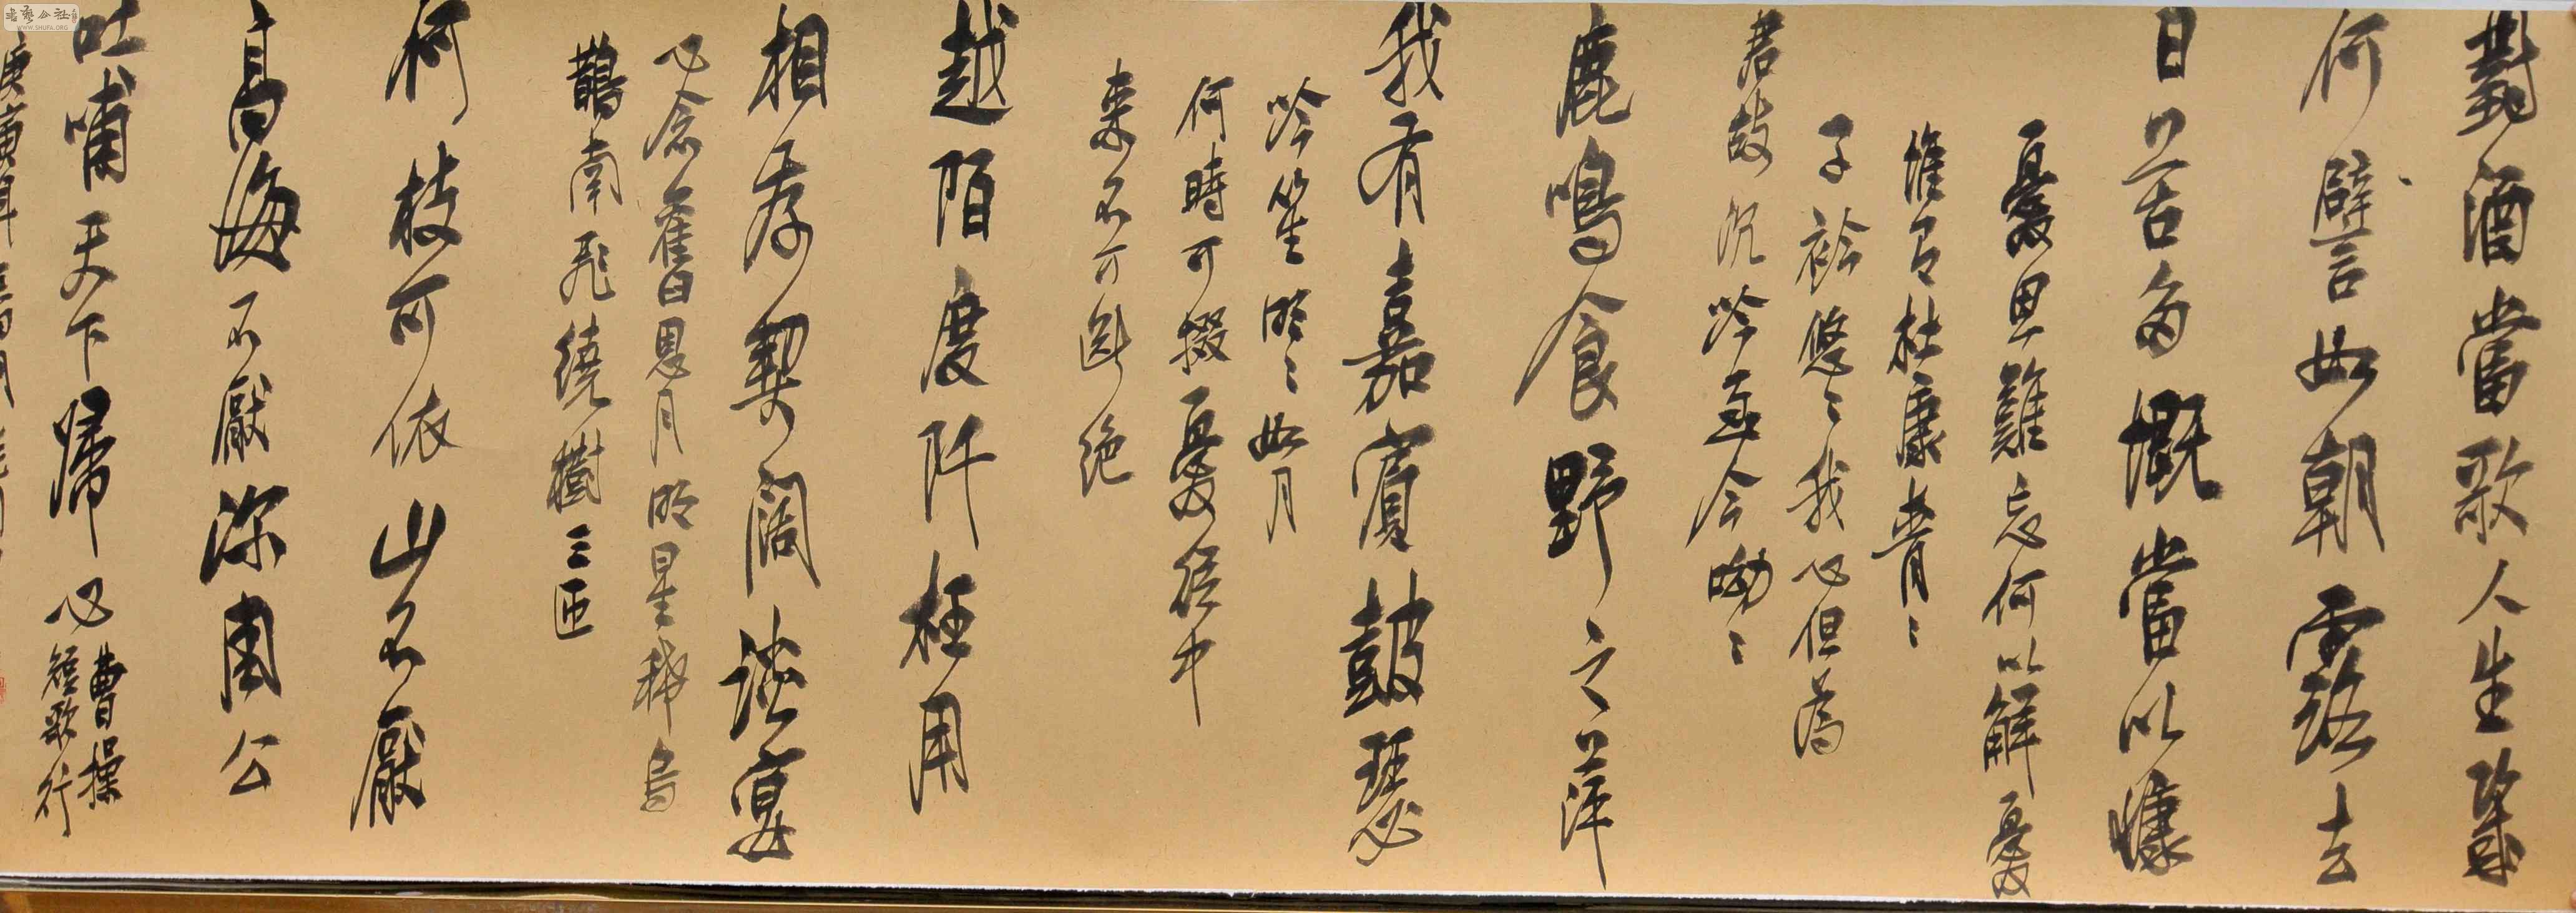 對酒當歌人生幾
何譬如朝露去
日苦多慨當以慷
憂思難忘何以解憂
惟有杜康青〻
子衿悠〻我心但為
君故沉吟至今呦〻
鹿鳴食野之萍
我有嘉賓鼓瑟
吟笙明〻如月
何時可掇憂從中
來不可斷絕
越陌度阡枉用
相存契闊談宴
心念舊恩月明星稀烏
鵲南飛繞樹三匝
何枝可依山不厭
高海不厭深周公
吐哺天下歸心
曹操
短歌行
庚寅年
WWW.SHUFA.ORG